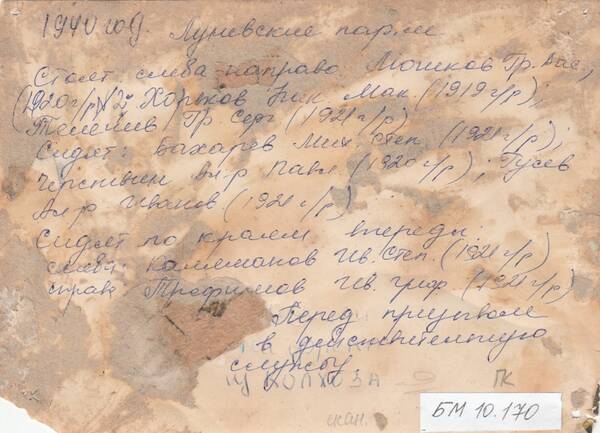 1940 год. Луневские парни
Стоят слева направо Мошков Гр. Вас.,
(1920 г/р) Хорьков Ник. Мак. (1919 г/р),
Гр. Серг. (1921 г/р)
Сидят: Бахарев Мих. Степ. (1921 г/р),
Ал-р Павл. (1920 г/р), Гусев
Ал-р Иванов. (1921 г/р)
Сидят по краям впереди:
слева Калмаков Ив. Степ. (1921 г/р)
справа Трофимов Ив. Григ. (1921 г/р)
Перед призывом
в действительную
службу
КОЛХОЗА
ГК
скан.
БМ 10.170